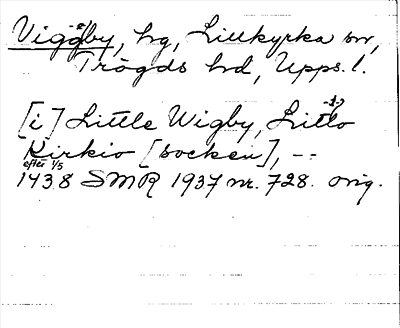 Viggby, hg, Lillkyrka sn,
Trögds hd, Upps. l.
[i] Little Wigby, Litlo
Kirkio [socken], --
efter 1/5
1438 SMR 1937 nr. 728. orig.